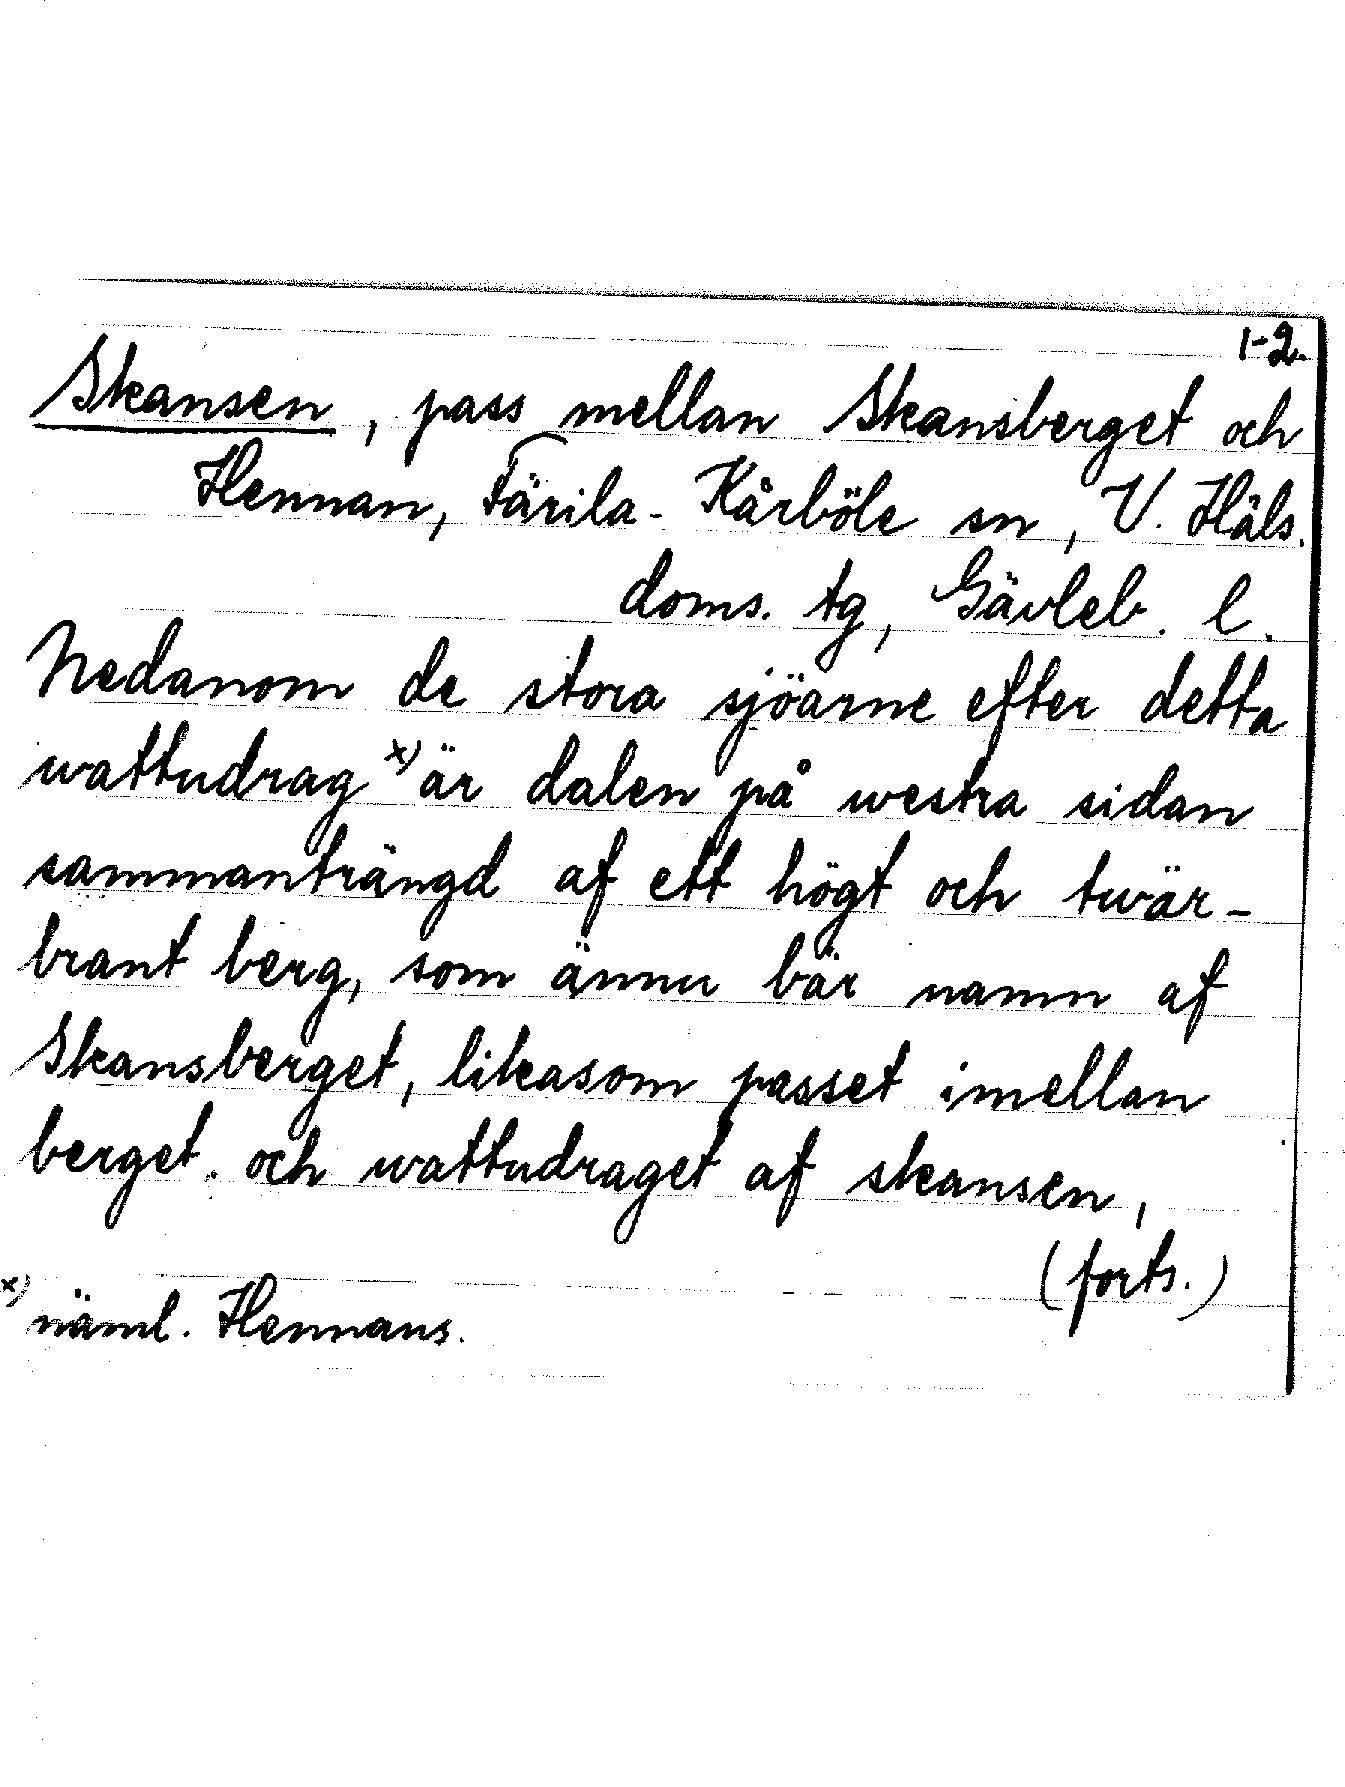 1-2.
Skansen, pass mellan Skansberget och
Hennan, Färila-Kårböle sn, V. Häls.
doms. tg, Gävleb. l.
Nedanom de stora sjöarne efter detta
wattudrag x) är dalen på westra sidan
sammanträngd af ett högt och twär-
brant berg, som ännu bär namn af
Skansberget, likasom passet imellan
berget och wattudraget af skansen,
(forts.)
x) näml. Hennans.